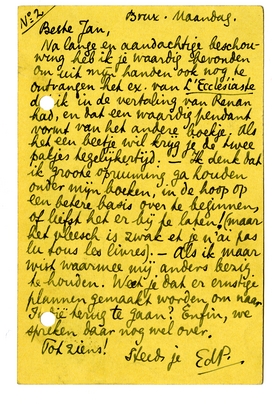 No 2
Brux. Maandag.
Beste Jan,
Na lange en aandachtige beschou-
wing heb ik je waardig bevonden
om uit mijn handen ook nog te
ontvangen het ex. van L'Ecclésiaste
dat ik in de vertaling van Renan
had, en dat een waardig pendant
vormt van het andere boekje. Als
het een beetje wil krijg je de twee
pakjes tegelijkertijd. — Ik denk dat
ik groote opruiming ga houden
onder mijn boeken, in de hoop op
een betere basis over te beginnen
of liefst het er bij te laten! (maar
het vleesch is zwak et je n'ai pas
lu tous les livres). — Als ik maar
wist waarmee mij anders bezig
te houden. Weet je dat er ernstige
plannen gemaakt worden om naar
terug te gaan? Enfin, we
spreken daar nog wel over.
Tot ziens! Steeds je EdP.